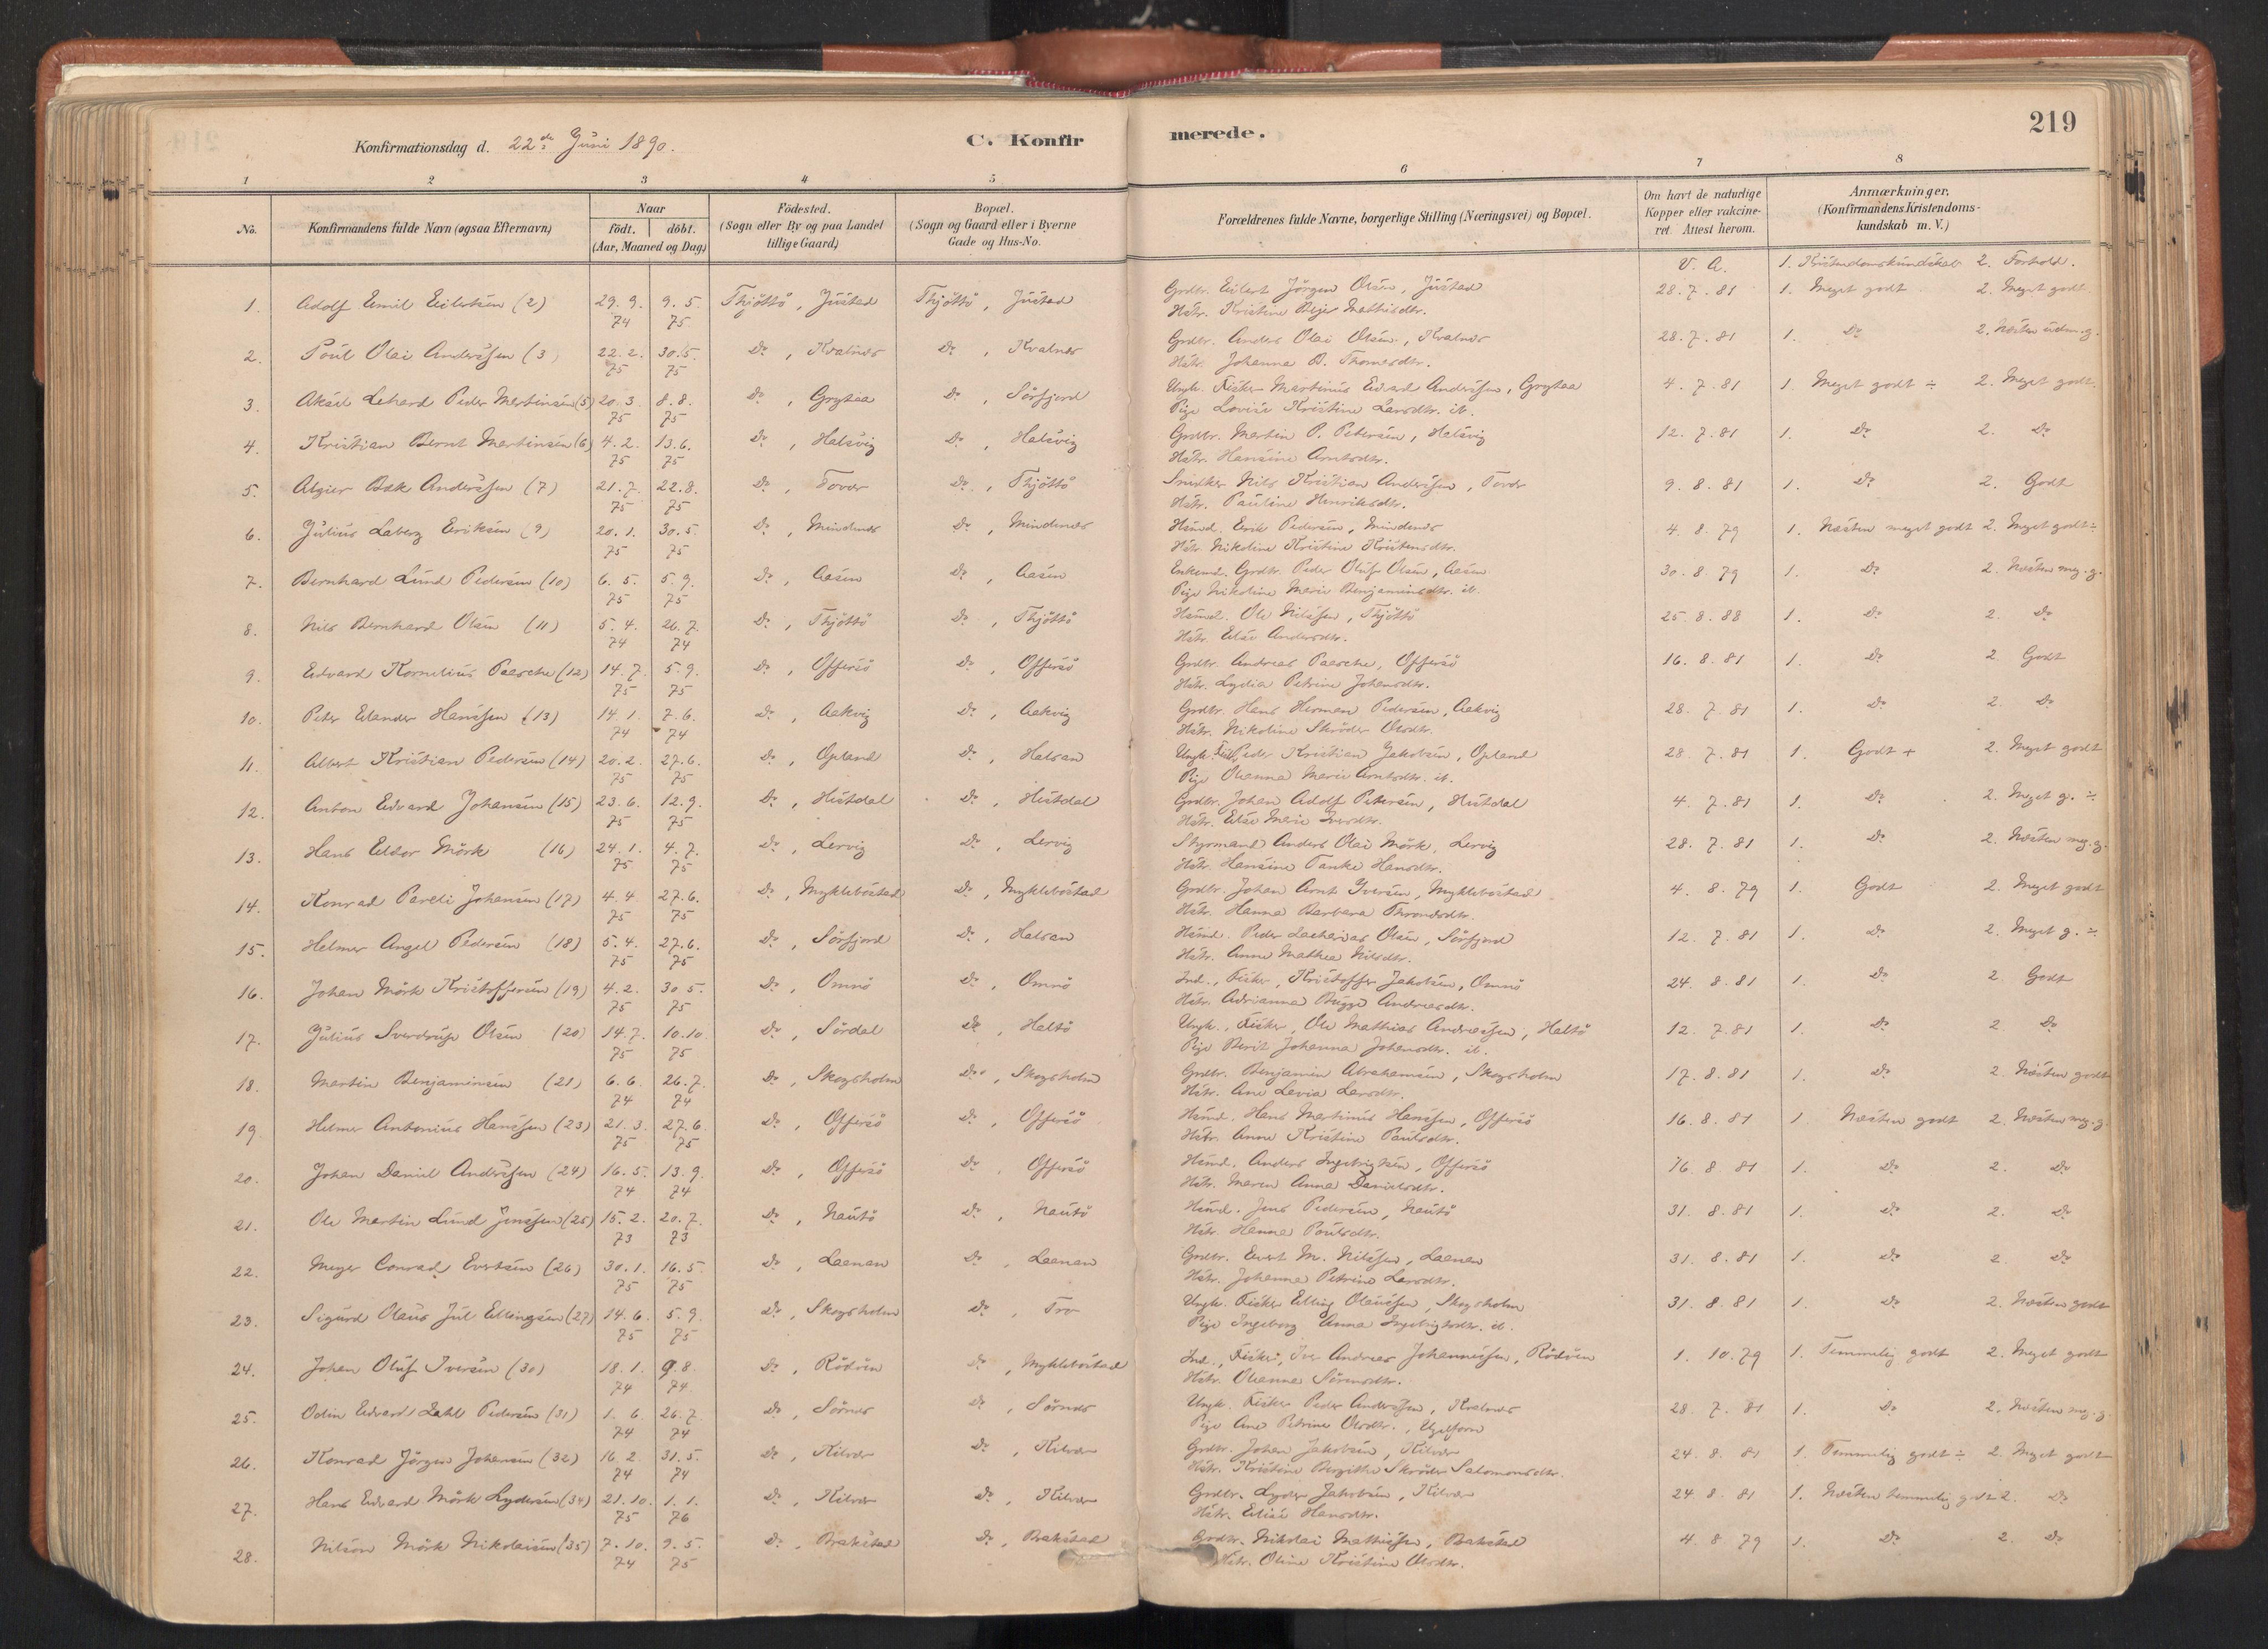 Konfirmationsdag d. 22de Juni 1890.
C. Konfirmerede.
219
1 2 3 4 5 6 7 8
No.
Konfirmandens fulde Navn (ogsaa Efternavn)
Naar
födt. döbt.
(Aar, Maaned og Dag)
Födested.
(Sogn eller By og paa Landet
tillige Gaard)
Bopæl.
(Sogn og Gaard eller i Byerne
Gade og Hus-No.
Forældrenes fulde Navne, borgerlige Stilling (Næringsvei) og Bopæl.
Om havt de naturlige
Kopper eller vakcine-
ret. Attest herom.
Anmærkninger.
(Konfirmandens Kristendoms-
kundskab m. V.)
V. A. 1. Kristendomskundskab 2. Forhold.
1. Adolf Emil Eilertsen (2) 29.9. 9.5. Thjöttö, Justad Thjöttö, Justad Grdbr. Eilert Jörgen Olsen, Justad 28.7.81 1. Meget godt 2. Meget godt
74 75 Hstr. Kristine Beyer Mathisdtr.
2. Poul Olai Anderssen (3) 22.2. 30.5. Do, Kvalnes Do, Kvalnes Grdbr. Anders Olai Olsen, Kvalnes 28.7.81 1. Do 2. Næsten udm. g.
75 75 Hstr. Johanna B. Thomasdtr.
3. Aksel Lehard Peder Martinsen (5) 20.3. 8.8. Do, Grytaa Do, Sörfjord Ungk. Fisker Martinus Edvard Anderssen, Grytaa 4.7.81 1. Meget godt ÷ 2. Meget godt.
75 75 Pige Lovise Kristine Larsdtr. ib.
4. Kristian Bernt Martinsen (6) 4.2. 13.6. Do, Halsvig Do, Halsvig Grdbr. Martin P. Petersen, Halsvig 12.7.81 1. Do 2. Do
75 75 Hstr. Hansine Arntsdtr.
5. Algier Bak Anderssen (7) 21.7. 22.8. Do, Tover Do, Thjöttö Snedker Nils Kristian Anderssen, Tover 9.8.81 1. Do 2. Godt
75 75 Hstr. Pauline Henriksdtr.
6. Julius Laberg Eriksen (9) 20.1. 30.5. Do, Mindenes Do, Mindenes Husmd. Erik Pedersen, Mindenes 4.8.79 1. Næsten meget godt 2. Meget godt ÷
75 75 Hstr. Nikoline Kristine Kristensdtr.
7. Bernhard Lund Pedersen (10) 6.5. 5.9. Do, Aasen Do, Aasen Enkemd. Grdbr. Peder Oluf Olsen, Aasen 30.8.79 1. Do 2. Næsten meg. g.
75 75 Pige Nikoline Marie Benjaminsdtr. ib.
8. Nils Bernhard Olsen (11) 5.4. 26.7. Do, Thjöttö Do, Thjöttö Husmd. Ole Nilssen, Thjöttö 25.8.88 1. Do 2. Do
74 74 Hstr. Elise Andersdtr.
9. Edvard Kornelius Paasche (12) 14.7. 5.9. Do, Offersö Do, Offersö Grdbr. Andreas Paasche, Offersö 16.8.81 1. Do 2. Godt
75 75 Hstr. Lydia Petrine Johansdtr.
10. Peter Elander Hanssen (13) 14.1. 7.6. Do, Aakvig Do, Aakvig Grdbr. Hans Herman Pedersen, Aakvig 28.7.81 1. Do 2. Do
74 74 Hstr. Nikoline Skröder Olsdtr.
11. Albert Kristian Pedersen (14) 20.2. 27.6. Do, Opland Do, Halsan Ungk. Fisk. Peder Kristian Jakobsen, Opland 28.7.81 1. Godt + 2. Meget godt
75 75 Pige Oleanna Marie Arntsdtr. ib.
12. Anton Edvard Johansen (15) 23.6. 12.9. Do, Hestdal Do, Hestdal Grdbr. Johan Adolf Petersen, Hestdal 4.7.81 1. Do 2. Meget g. ÷
75 75 Hstr. Elise Marie Iversdtr.
13. Hans Eldor Mörk (16) 24.1. 4.7. Do, Lervig Do, Lervig Styrmand Anders Olai Mörk, Lervig 28.7.81 1. Do 2. Næsten meg. g.
75 75 Hstr. Hansine Tanke Hansdtr.
14. Konrad Pareli Johansen (17) 4.4. 27.6. Do, Myklebostad Do, Myklebostad Grdbr. Johan Arnt Iversen, Myklebostad 4.8.79 1. Godt 2. Meget godt
75 75 Hstr. Hanna Barbara Throndsdtr.
15. Helmer Angel Pedersen (18) 5.4. 27.6. Do, Sörfjord Do, Halsan Husmd. Peder Zacharias Olsen, Sörfjord 12.7.81 1. Do 2. Meget g. ÷
75 75 Hstr. Anne Mathea Nilsdtr.
16. Johan Mörk Kristoffersen (19) 4.2. 30.5. Do, Omnö Do, Omnö Ind., Fisker, Kristoffer Jakobsen, Omnö 24.8.81 1. Do 2. Godt
75 75 Hstr. Adrianna Bugge Andreasdtr.
17. Julius Sverdrup Olsen (20) 14.7. 10.10. Do, Sördal Do, Haltö Ungk., Fisker, Ole Mathias Andreassen, Haltö 12.7.81 1. Do 2. Do
75 75 Pige Berit Johanna Johansdtr. ib.
18. Martin Benjaminsen (21) 6.6. 26.7. Do, Skogsholm Do, Skogsholm Grdbr. Benjamin Abrahamsen, Skogsholm 17.8.81 1. Do 2. Næsten godt
74 74 Hstr. Ane Lavia Larsdtr.
19. Helmer Antonius Hanssen (23) 21.3. 27.6. Do, Offersö Do, Offersö Husmd. Hans Martinus Hanssen, Offersö 16.8.81 1. Næsten godt 2. Næsten meg. g.
75 75 Hstr. Anne Kristine Paulsdtr.
20. Johan Daniel Anderssen (24) 16.5. 13.9. Do, Offersö Do, Offersö Husmd. Anders Ingebrigtsen, Offersö 16.8.81 1. Do 2. Do
74 74 Hstr. Maren Anna Danielsdtr.
21. Ole Martin Lund Jenssen (25) 15.2. 20.7. Do, Nautö Do, Nautö Husmd. Jens Pedersen, Nautö 31.8.81 1. Do 2. Do
73 73 Hstr. Hanna Paulsdtr.
22. Meyer Conrad Evertsen (26) 30.1. 16.5. Do, Laanan Do, Laanan Grdbr. Evert M. Nilssen, Laanan 31.8.81 1. Do 2. Do
75 75 Hstr. Johanna Petrine Larsdtr.
23. Sigurd Olaus Jul Ellingsen (27) 14.6. 5.9. Do, Skogsholm Do, Tro Ungk. Fisker Elling Olaussen, Skogsholm 31.8.81 1. Do 2. Næsten godt
75 75 Pige Ingeborg Anna Ingebrigtsdtr. ib.
24. Johan Oluf Iversen (30) 18.1. 9.8. Do, Rödöen Do, Myklebostad Ind., Fisker, Iver Andreas Johannessen, Rödöen 1.10.79 1. Temmelig godt 2. Meget godt
74 74 Hstr. Oleanna Sörensdtr.
25. Odin Edvard Dahl Pedersen (31) 1.6. 26.7. Do, Sörnes Do, Sörnes Ungk. Fisker Peder Anderssen, Kvalnes 28.7.81 1. Do 2. Næsten meg. g.
74 74 Pige Ane Petrine Olsdtr.,
26. Konrad Jörgen Johansen (32) 16.2. 31.5. Do, Kilvær Do, Kilvær Grdbr. Johan Jakobsen, Kilvær 24.8.81 1. Temmelig godt ÷ 2. Meget godt
74 74 Hstr. Kristine Bergitte Skröder Salomonsdtr.
27. Hans Edvard Mörk Lydersen (34) 21.10. 1.1. Do, Kilvær Do, Kilvær Grdbr. Lyder Jakobsen, Kilvær 24.8.81 1. Næsten temmelig godt 2. Do
75 76 Hstr. Elise Hansdtr.
28. Nilson Mörk Nikolaisen (35) 7.10. 9.5. Do, Brakstad Do, Brakstad Grdbr. Nikolai Mathissen, Brakstad 4.8.79 1. Do 2. Do
74 75 Hstr. Oline Kristine Olsdtr.